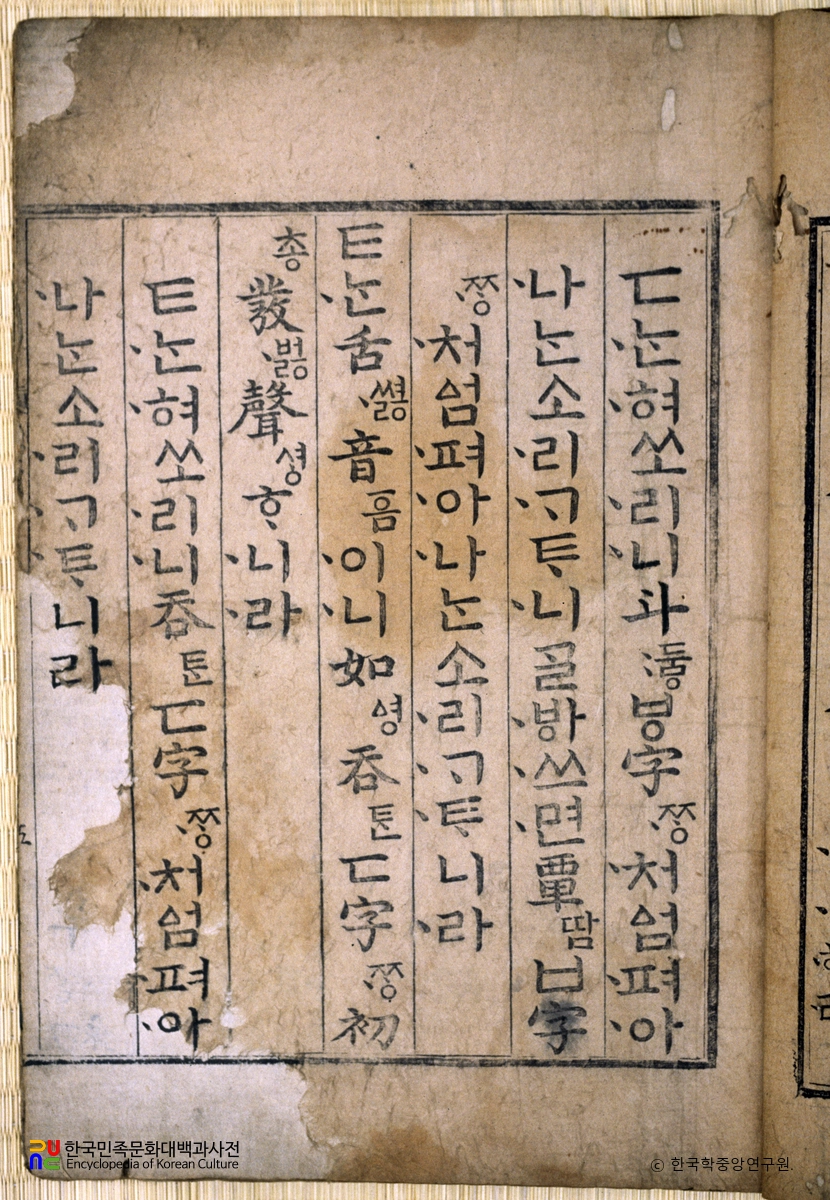 ㄷᄂᆞᆫ혀쏘리니斗두ᇢㅸ字ᄍᆞᆼ처ᅀᅥᆷ펴아
나ᄂᆞᆫ소리ᄀᆞᄐᆞ니ᄀᆞᆯᄫᅡ쓰면覃땀ㅂ字
ᄍᆞᆼ처ᅀᅥᆷ펴아나ᄂᆞᆫ소리ᄀᆞᄐᆞ니라
ㅌᄂᆞᆫ舌쎠ᇙ音ᅙᅳᆷ이니如ᅀᅧᆼ呑ᄐᆞᆫㄷ字ᄍᆞᆼ初
총發버ᇙ聲셩ᄒᆞ니라
ㅌᄂᆞᆫ혀쏘리니呑ᄐᆞᆫㄷ字ᄍᆞᆼ처ᅀᅥᆷ펴아
나ᄂᆞᆫ소리ᄀᆞᄐᆞ니라
한국민족문화대백과사전
Encyclopedia of Korean Culture
© 한국학중앙연구원.